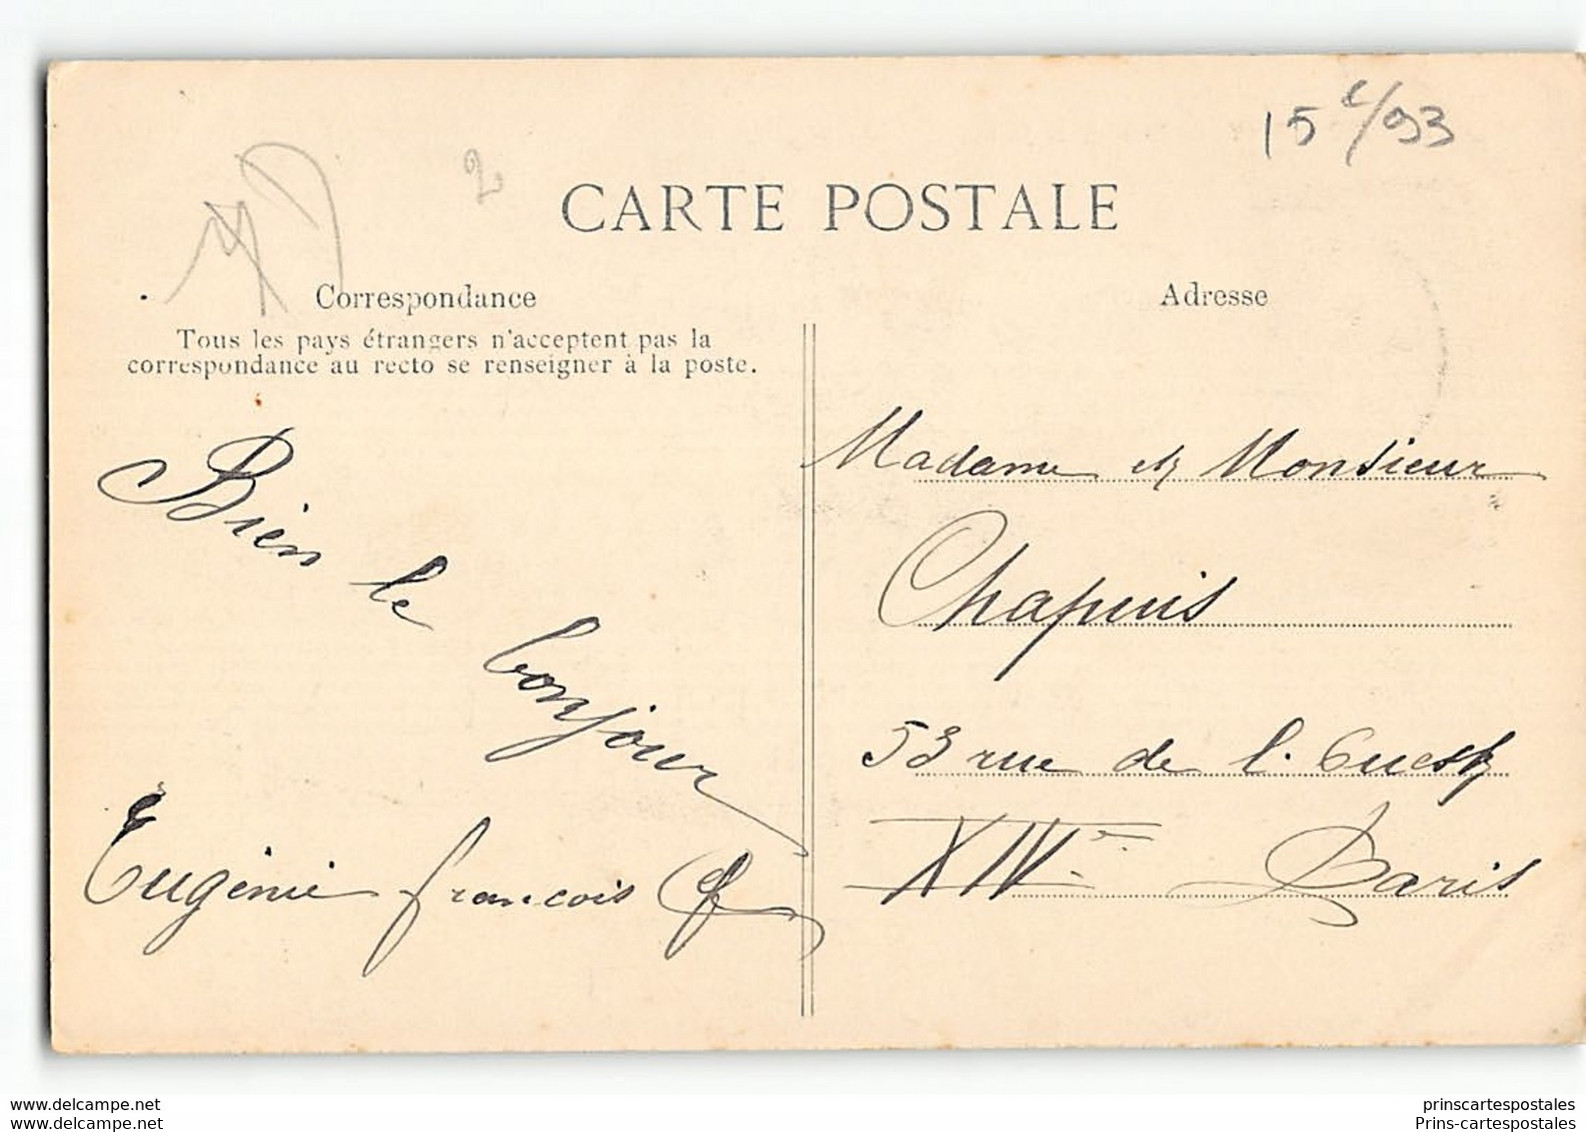 15 c/93
2
CARTE POSTALE
Correspondance
Tous les pays étrangers n'acceptent pas la
correspondance au recto se renseigner à la poste.
Bien
le
bonjour
Eugénie francois
Adresse
Madame et Monsieur
Chapuis
53 rue de l. Ouest
XIVe Paris
www.delcampe.net
www.delcampe.net
prinscartespostales
Prins-cartespostales